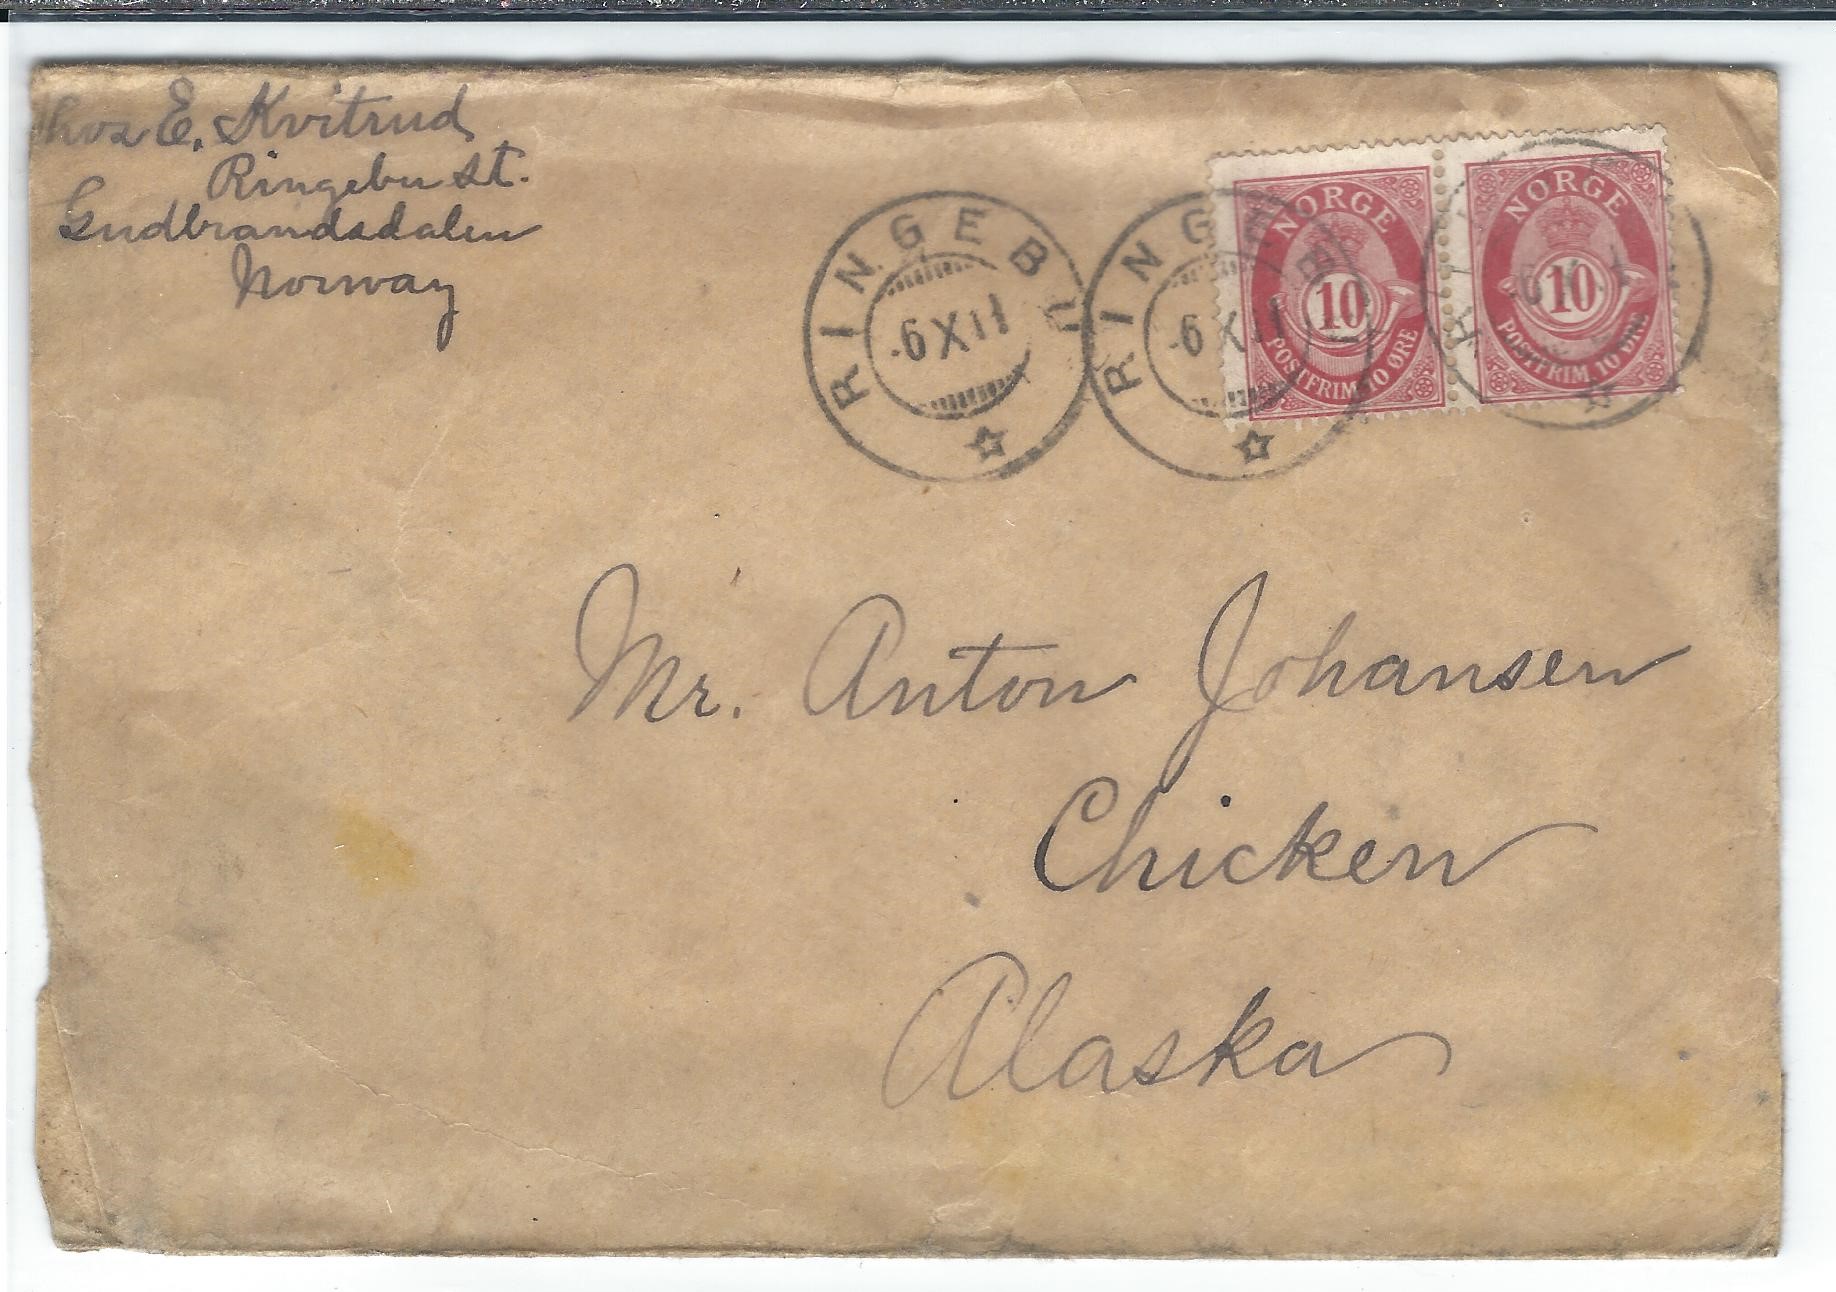 Thos E. Kvitrud
Ringebu St.
Gudbrandsdalen
Norway
RINGEBU
-6 X 11
RINGEBU
-6 X 11
NORGE
10
POSTFRIM. 10 ØRE
NORGE
10
POSTFRIM. 10 ØRE
Mr. Anton Johansen
Chicken
Alaska